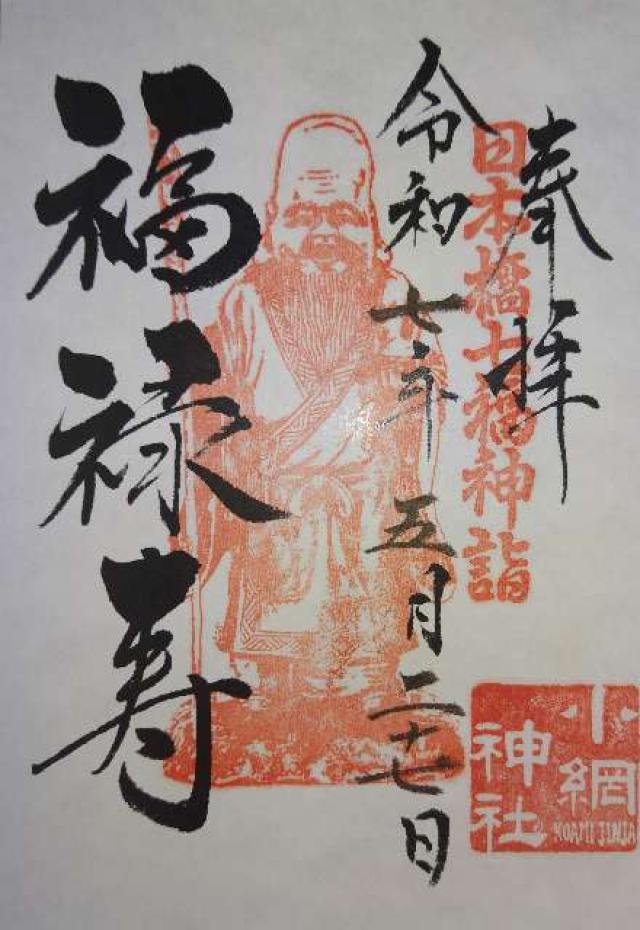 奉拝
日本橋七福神詣
令和七年五月二十七日
福禄寿
小網
神社
KOAMI JINJA